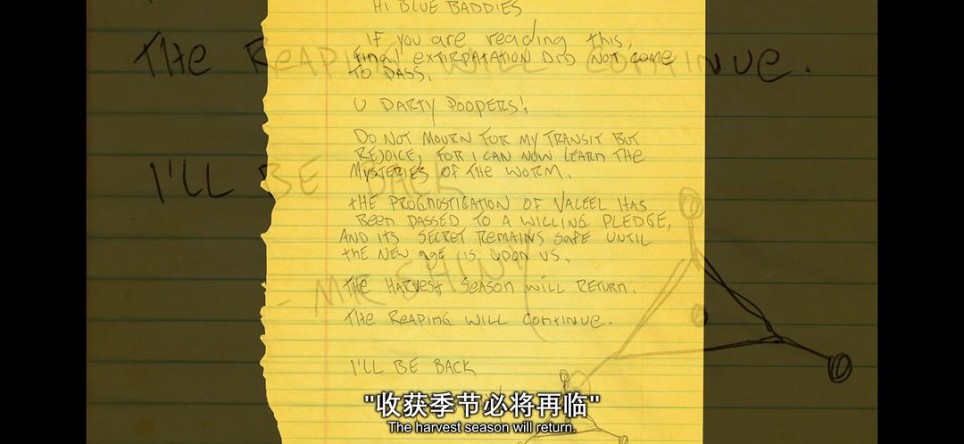 HI BLUE BADDIES
IF you are reading this,
final EXTIRPATATION DID NOT come
TO PASS.
U PARTY POOPERS!
DO NOT MOURN FOR MY TRANSIT BUT
REJOICE, FOR I CAN NOW LEARN THE
MYSTERIES OF THE WORM.
THE PROGNOSTIGATION OF VALEEL HAS
BEEN PASSED TO A WILLING PLEDGE,
AND ITS SECRET REMAINS SAFE UNTIL
THE NEW AGE IS UPON US.
THE HARVEST SEASON WILL RETURN.
THE REAPING WILL CONTINUE.
I'LL BE BACK
THE REAPING WILL CONTINUE.
I'LL BE BACK
- MR SHINY
"收获季节必将再临"
The harvest season will return.